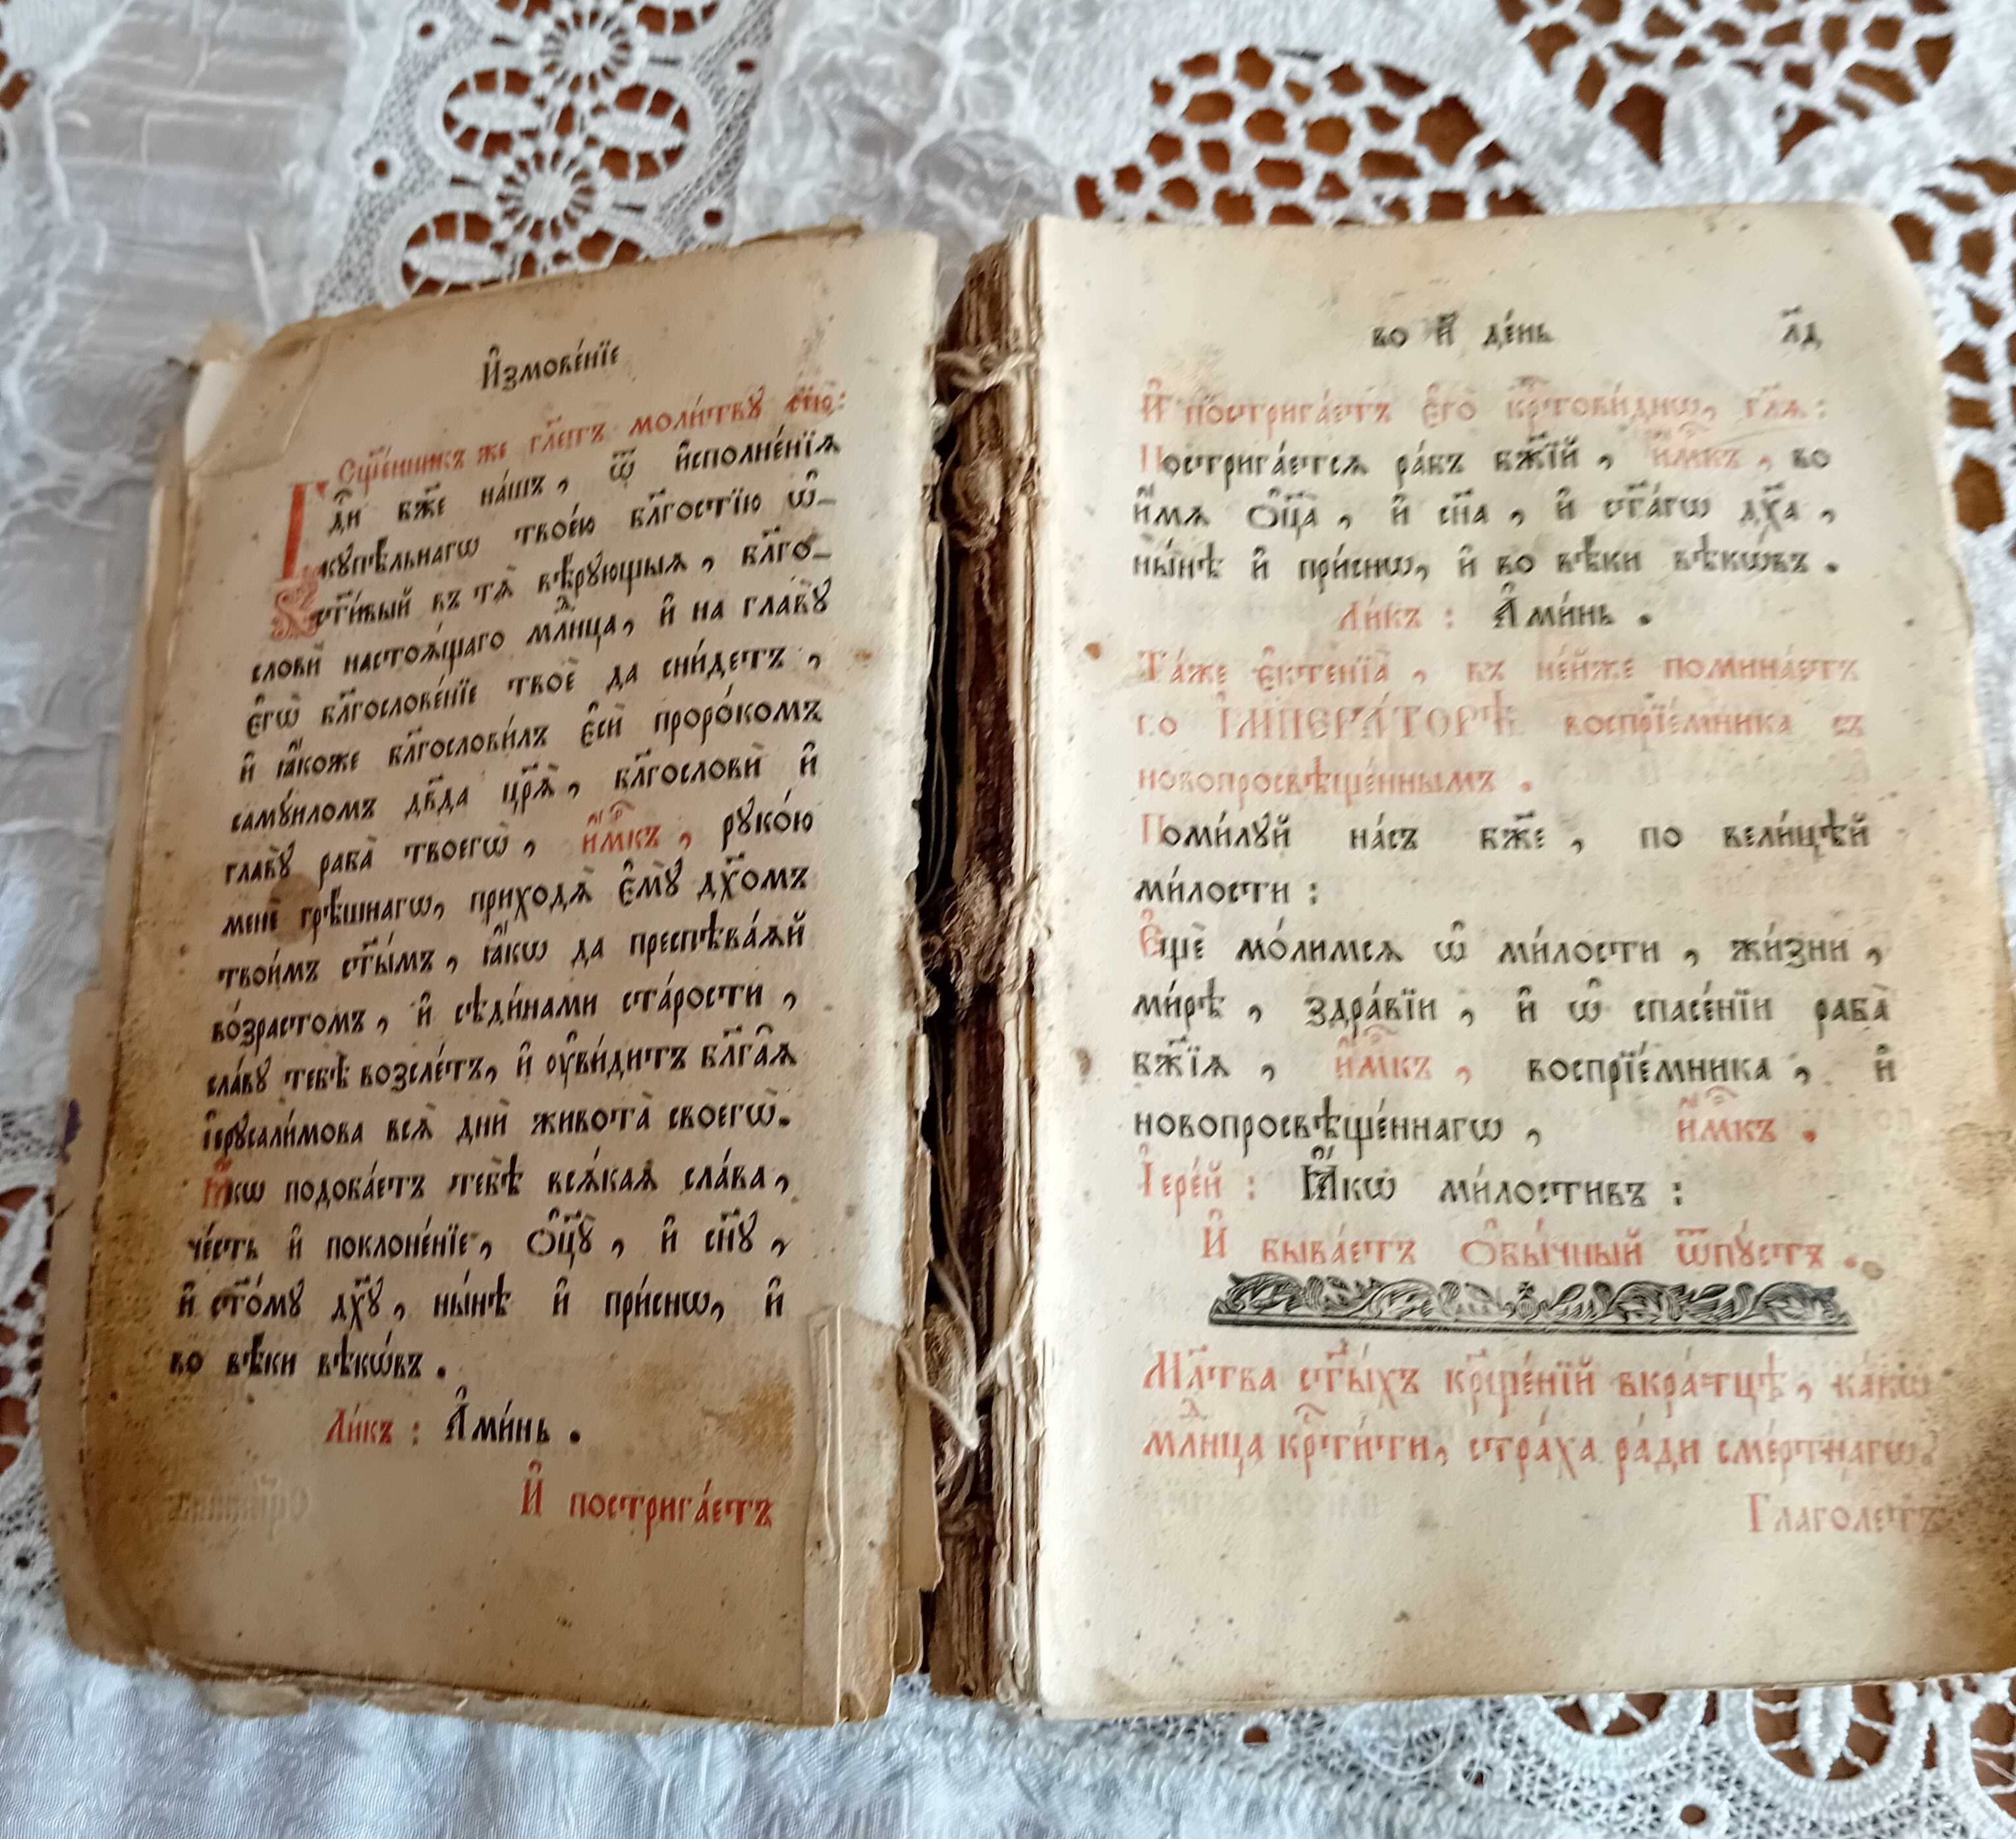 И҆змове́нїе
Сщ҃е́нникъ же гл҃етъ моли́твꙋ сїю̀:
Гдⷭ҇и бж҃е на́шъ, ѿ и҆сполне́нїѧ
кꙋпѣ́льнагѡ твое́ю бл҃гостїю ѡ҆-
ст҃и́вый въ тѧ̀ вѣ́рꙋющыѧ, бл҃го-
словѝ настоѧ́щаго млⷣнца, и҆ на главꙋ̀
є҆гѡ̀ бл҃гослове́нїе твоѐ да сни́детъ,
и҆ ꙗ҆́коже бл҃гослови́лъ є҆сѝ проро́комъ
самꙋ́иломъ дв҃да цр҃ѧ̀, бл҃гословѝ и҆
главꙋ̀ раба̀ твоегѡ̀, и҆м҃къ, рꙋко́ю
менѐ грѣ́шнагѡ, приходѧ̀ є҆мꙋ̀ дх҃омъ
твои́мъ ст҃ы́мъ, ꙗ҆́кѡ да преспѣва́ѧй
во́зрастомъ, и҆ сѣди́нами ста́рости,
сла́вꙋ тебѣ̀ возсле́тъ, и҆ ᲂу҆ви́дитъ бл҃га̑ѧ
і҆ерꙋсали́мова всѧ̀ днѝ живота̀ своегѡ̀.
Ꙗ҆́кѡ подоба́етъ тебѣ̀ всѧ́каѧ сла́ва,
че́сть и҆ поклоне́нїе, ѻ҆ц҃ꙋ̀, и҆ сн҃ꙋ,
и҆ ст҃о́мꙋ дх҃ꙋ, ны́нѣ и҆ при́снѡ, и҆
во вѣ́ки вѣкѡ́въ.
Ли́къ: А҆ми́нь.
И҆ постриgáетъ
во и҃ де́нь л҃д
И҆ пострига́етъ є҆го̀ крⷭ҇тови́днѡ, гл҃ѧ:
Пострига́етсѧ ра́бъ бж҃їй, и҆м҃къ, во
и҆́мѧ ѻ҆ц҃а̀, и҆ сн҃а, и҆ ст҃а́гѡ дх҃а,
ны́нѣ и҆ при́снѡ, и҆ во вѣ́ки вѣкѡ́въ.
Ли́къ: А҆ми́нь.
Та́же є҆ктенїа̀, въ не́йже помина́етъ
г.о І҆МПЕРА́ТОРѢ воспрїе́мника съ
новопросвѣще́ннымъ.
Поми́лꙋй на́съ бж҃е, по вели́цѣй
ми́лости:
Е҆щѐ мо́лимсѧ ѡ҆ ми́лости, жи́зни,
ми́рѣ, здра́вїи, и҆ ѡ҆ спасе́нїи раба̀
бж҃їѧ, и҆м҃къ, воспрїе́мника, и҆
новопросвѣще́ннагѡ, и҆м҃къ.
І҆ере́й: Ꙗ҆́кѡ ми́лостивъ:
И҆ быва́етъ ѻ҆бы́чный ѿпꙋ́стъ.
Мл҃тва ст҃ы́хъ крⷭ҇ще́нїй вкра́тцѣ, ка́кѡ
млⷣнца крⷭ҇ти́ти, стра́ха ра́ди сме́ртнагѡ.
Глаго́летъ